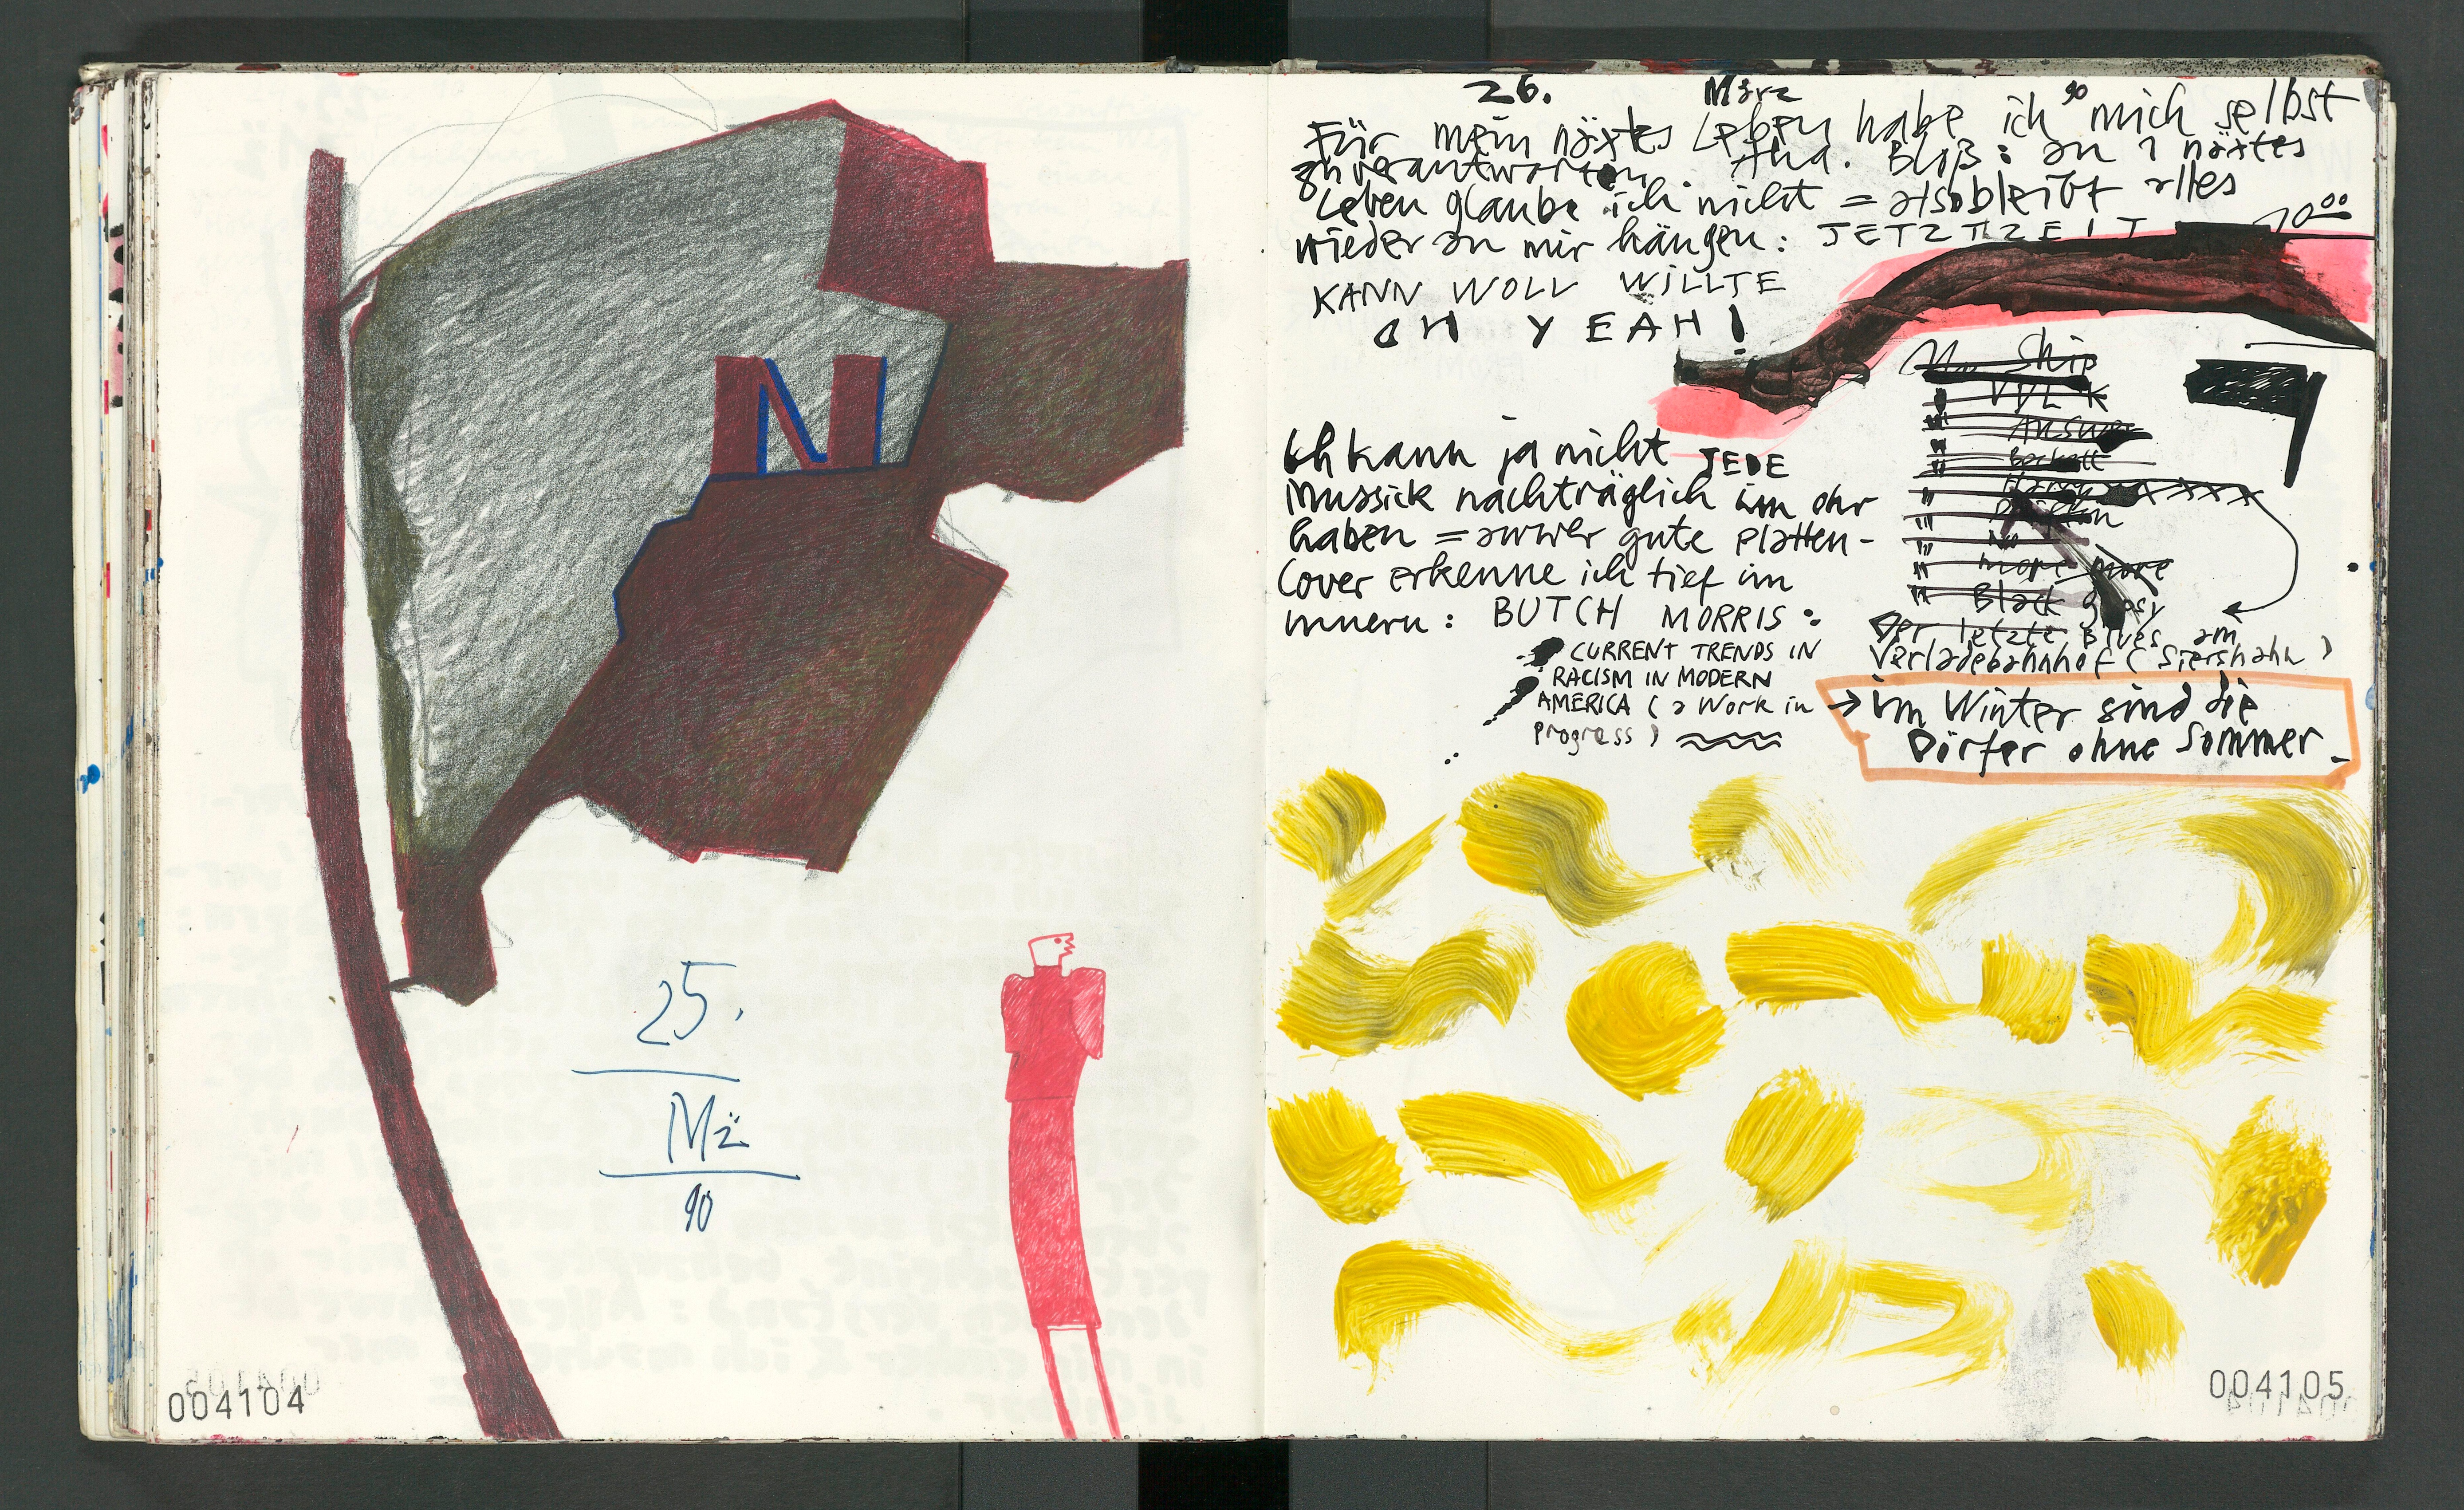 N
25.
Mz
90
004104
26. März 90
Für mein näxtes Leben habe ich mich selbst
zu verantworten. Aha. Bloß: an 1 näxtes
Leben glaube ich nicht = also bleibt alles
wieder an mir hängen: JETZTZEIT 10⁰⁰
KANN WOLL WILLTE
OH YEAH!
Ich kann ja nicht JEDE
Mussick nachträglich im Ohr
haben = awwer gute Platten-
Cover erkenne ich tief im
innern: BUTCH MORRIS:
CURRENT TRENDS IN
RACISM IN MODERN
AMERICA (a Work in
progress)
Ship
Answer
more more
Black gipsy
Der letzte Blues am
Verladebahnhof (Siershahn)
→ im Winter sind die
Dörfer ohne Sommer.
004105